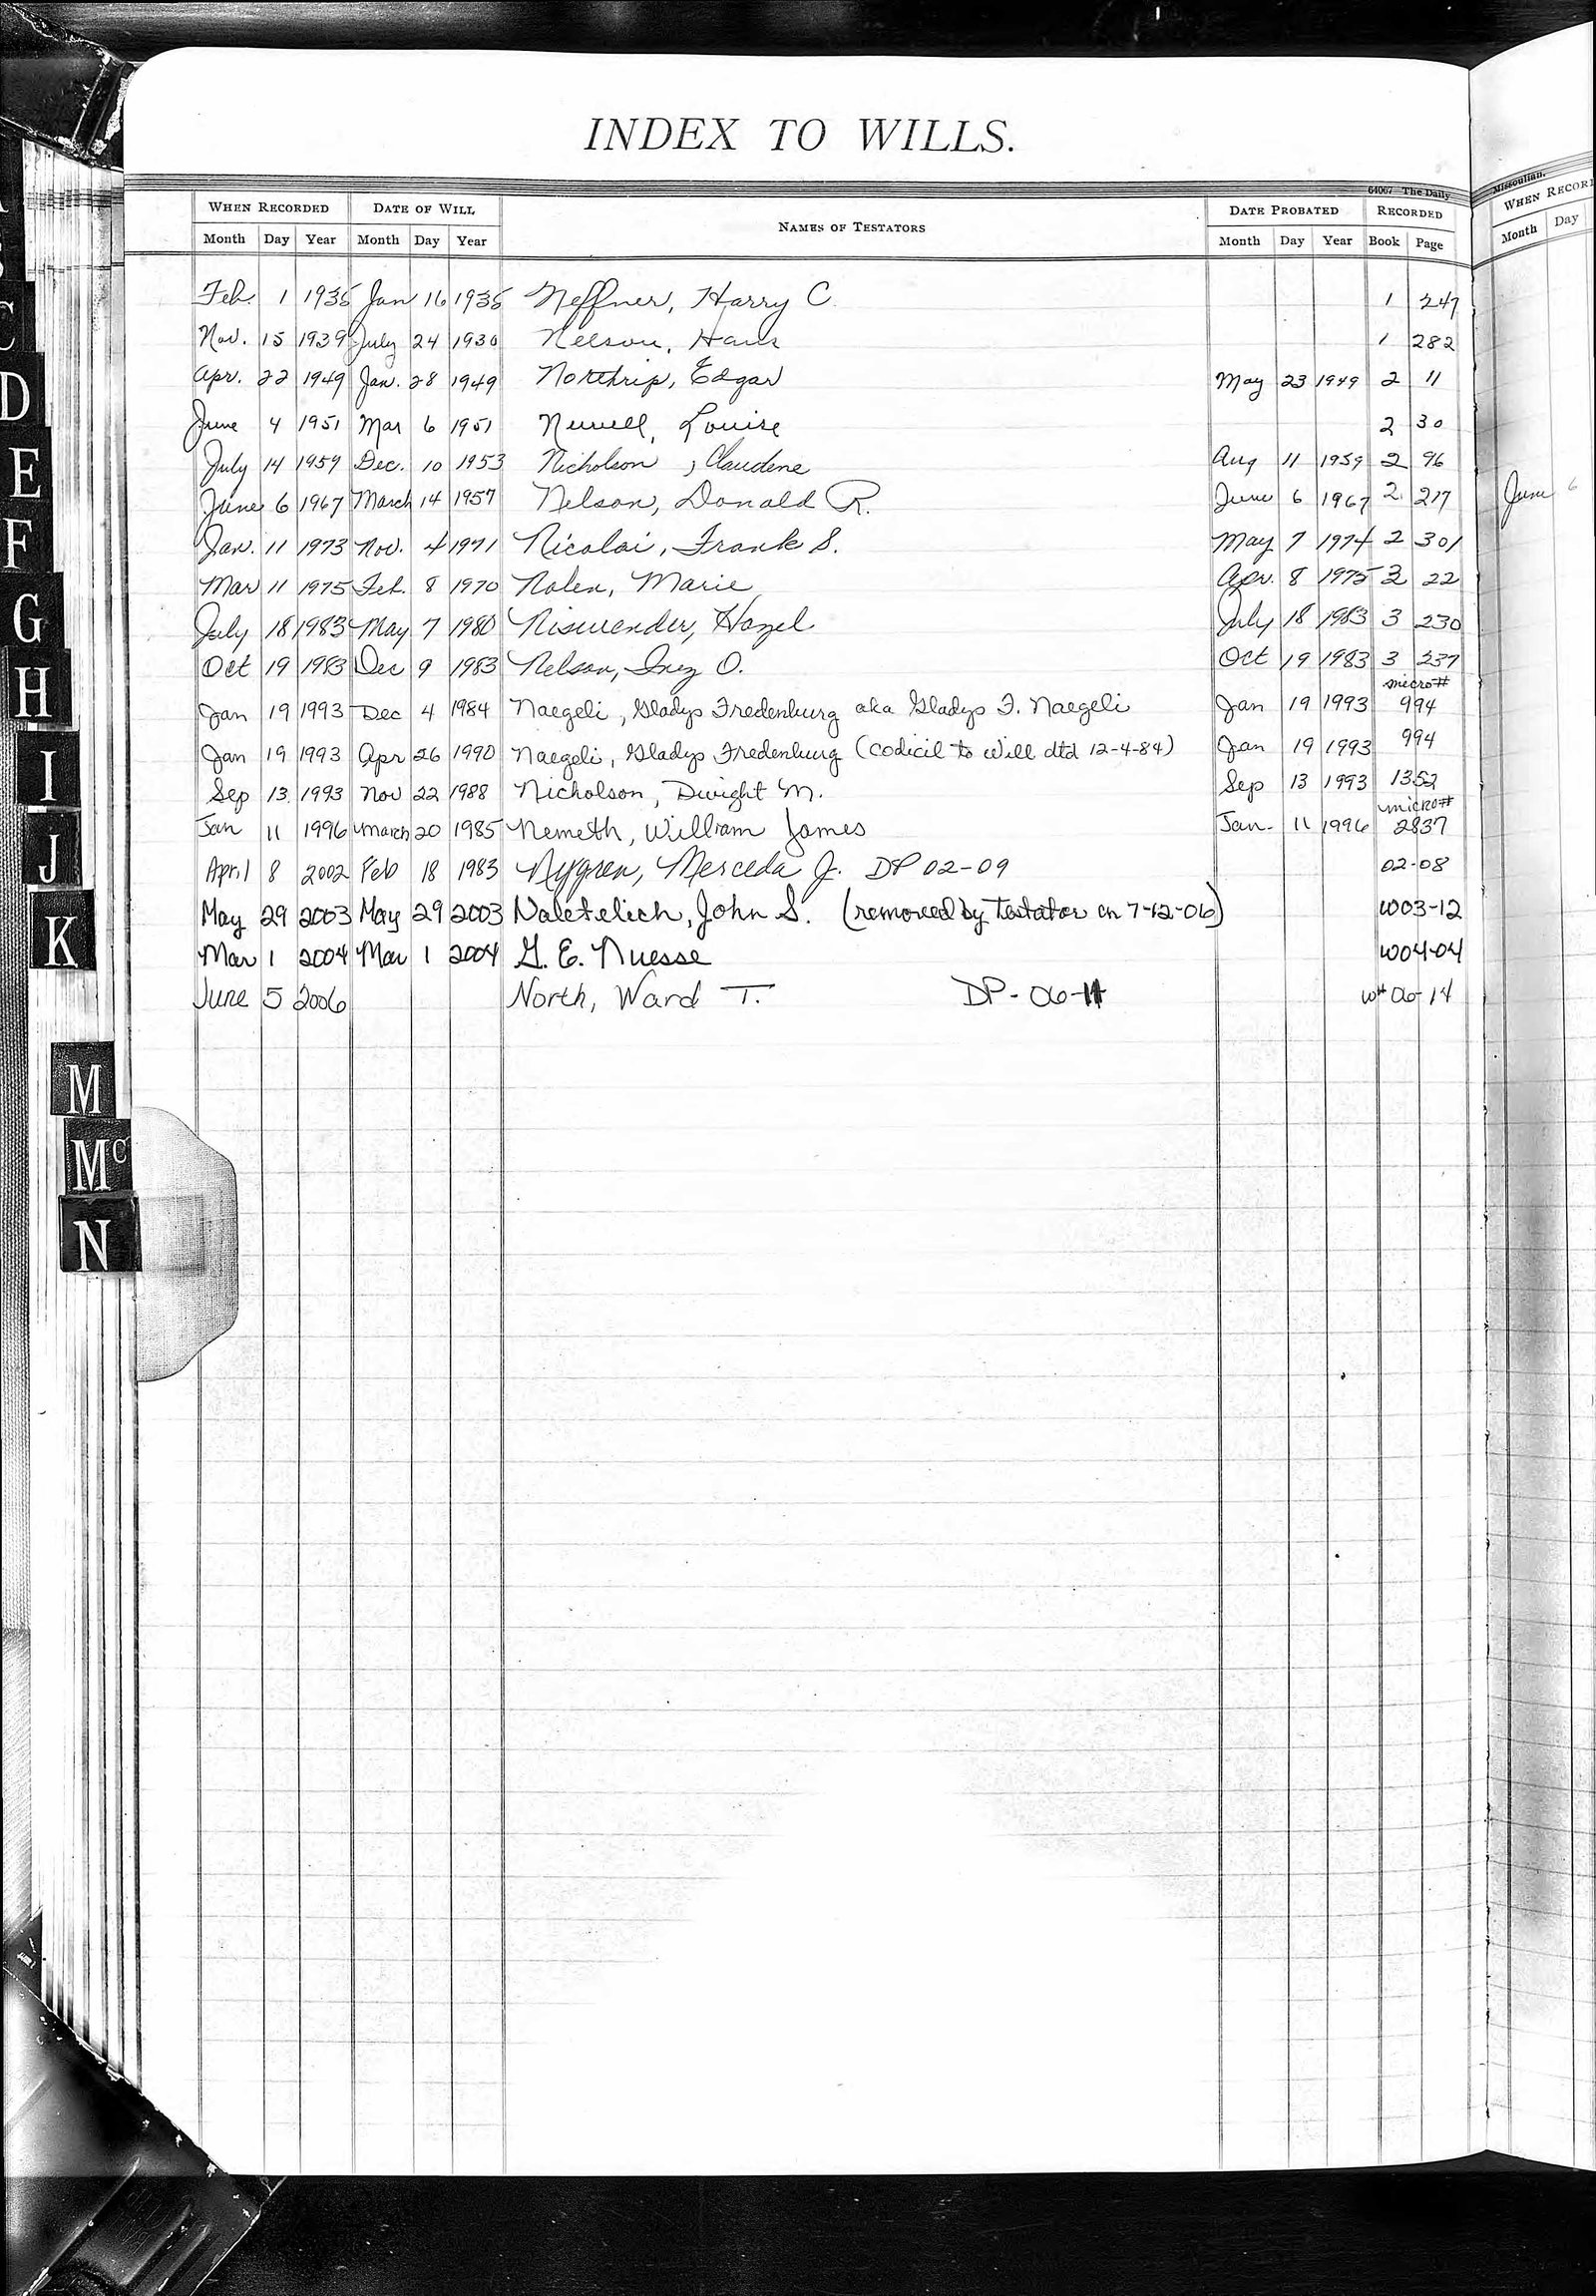 INDEX TO WILLS.
64067 The Daily Missoulian.
WHEN RECORDED DATE OF WILL NAMES OF TESTATORS DATE PROBATED RECORDED
Month Day Year Month Day Year Month Day Year Book Page
Feb. 1 1935 Jan 16 1935 Neffner, Harry C. 1 247
Nov. 15 1939 July 24 1930 Nelson, Hans 1 282
Apr. 22 1949 Jan. 28 1949 Northrip, Edgar May 23 1949 2 11
June 4 1951 Mar 6 1951 Newell, Louise 2 30
July 14 1959 Dec. 10 1953 Nicholson, Claudene Aug 11 1959 2 96
June 6 1967 March 14 1957 Nelson, Donald R. June 6 1967 2 217
Jan. 11 1973 Nov. 4 1971 Nicolai, Frank S. May 7 1974 2 301
Mar 11 1975 Feb. 8 1970 Nolen, Marie Apr. 8 1975 3 22
July 18 1983 May 7 1980 Niswender, Hazel July 18 1983 3 230
Oct 19 1983 Dec 9 1983 Nelson, Inez O. Oct 19 1983 3 237
micro#
Jan 19 1993 Dec 4 1984 Naegeli, Gladys Fredenburg aka Gladys F. Naegeli Jan 19 1993 994
Jan 19 1993 Apr 26 1990 Naegeli, Gladys Fredenburg (Codicil to Will dtd 12-4-84) Jan 19 1993 994
Sep 13 1993 Nov 22 1988 Nicholson, Dwight M. Sep 13 1993 1352
micro#
Jan 11 1996 March 20 1985 Nemeth, William James Jan. 11 1996 2837
April 8 2002 Feb 18 1983 Nygren, Merceda J. DP 02-09 02-08
May 29 2003 May 29 2003 Naletelich, John S. (removed by Testator on 7-12-06) W03-12
Mar 1 2004 Mar 1 2004 G. E. Nuesse W04-04
June 5 2006 North, Ward T. DP-06-11 W# 06-14
WHEN RECOR
Month Day
June 6
C
D
E
F
G
H
I
J
K
M
Mc
N